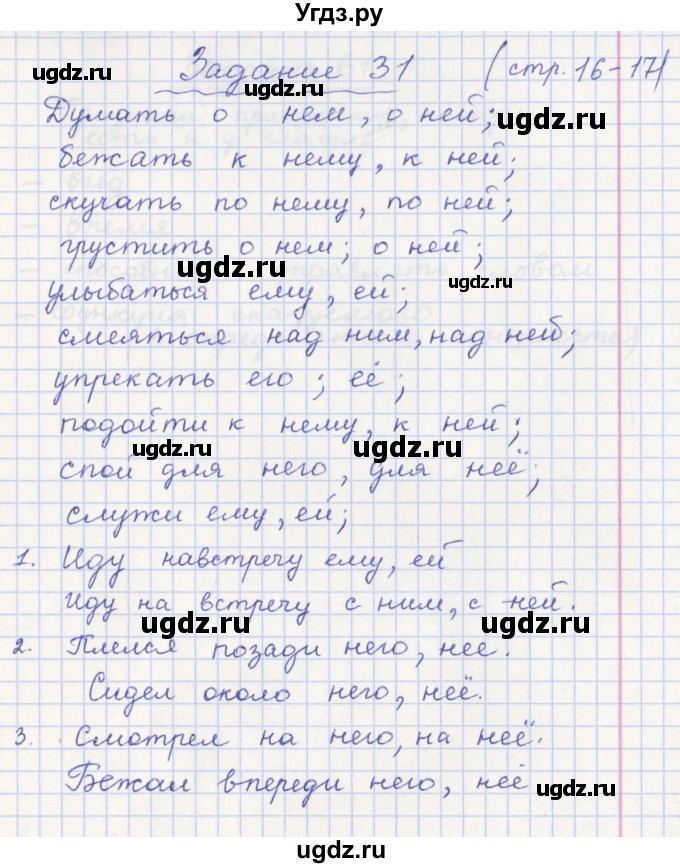 Угдз.ру
Задание 31 (стр. 16-17)
Думать о нем, о ней;
бежать к нему, к ней;
скучать по нему, по ней;
грустить о нем; о ней;
улыбаться ему, ей;
смеяться над ним, над ней;
упрекать его; её;
подойти к нему, к ней;
спой для него, для неё;
служи ему, ей;
1. Иду навстречу ему, ей
Иду на встречу с ним, с ней.
2. Плелся позади него, нее.
Сидел около него, неё.
3. Смотрел на него, на неё.
Бежал впереди него, неё
ugdz.ru
ugdz.ru
ugdz.ru
ugdz.ru
ugdz.ru
ugdz.ru
ugdz.ru
ugdz.ru
ugdz.ru
ugdz.ru
ugdz.ru
ugdz.ru